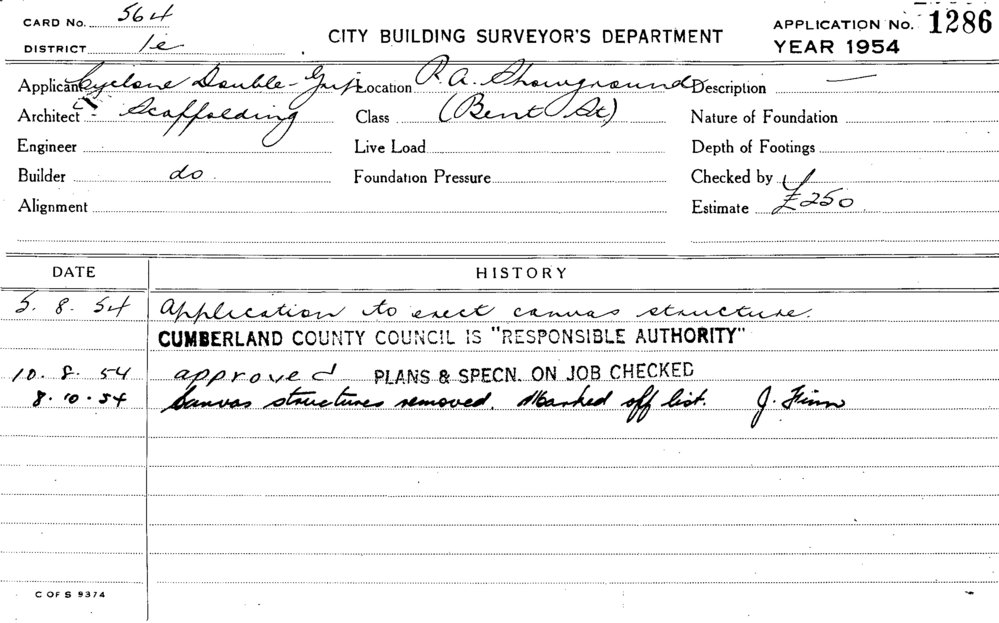 CARD No. 564
DISTRICT 1e
CITY BUILDING SURVEYOR'S DEPARTMENT
APPLICATION No. 1286
YEAR 1954
Applicant Cyclone Double-Grip Location R.A. Showground Description —
Architect Scaffolding Class (Bent St.) Nature of Foundation
Engineer Live Load Depth of Footings
Builder do Foundation Pressure Checked by
Alignment Estimate £250
DATE HISTORY
5. 8. 54 Application to erect canvas structure.
CUMBERLAND COUNTY COUNCIL IS "RESPONSIBLE AUTHORITY"
10. 8. 54 approved PLANS & SPECN. ON JOB CHECKED
8. 10. 54 Canvas structures removed. Marked off list. J. Finn
C OF S 9374